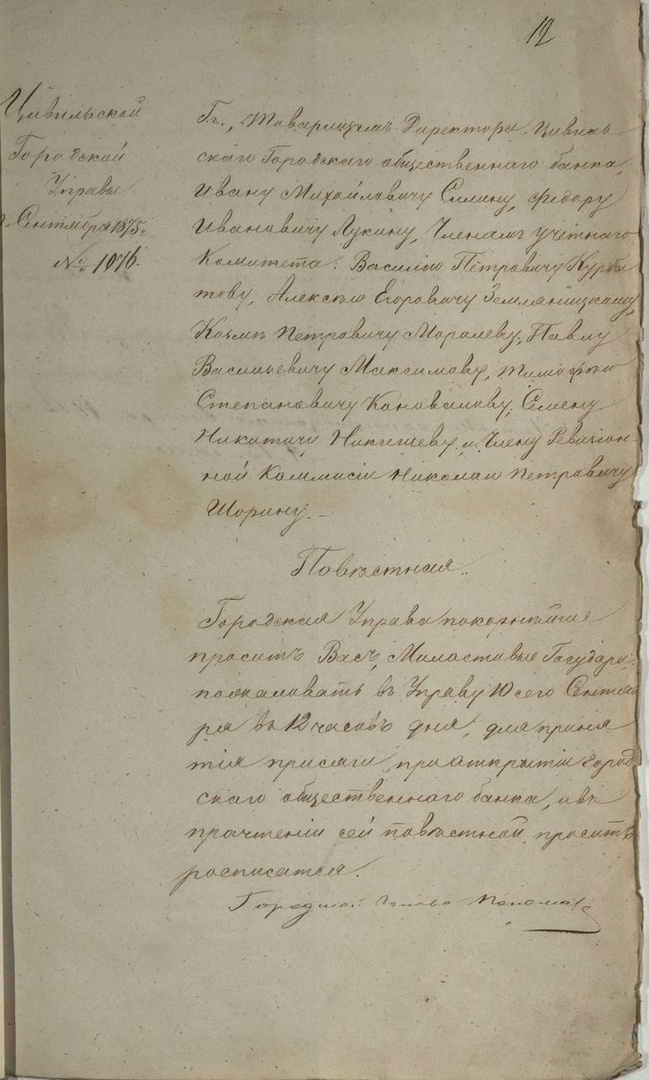 12
Цивильской
Городской
Управы
Сентября 1875 г.
№ 1076.
Гг., Товарищамъ Директора Цивиль-
скаго Городскаго общественнаго банка,
Ивану Михайловичу Силину, Федору
Ивановичу Лукину, Членамъ учетнаго
Комитета: Василію Петровичу Курба-
тову, Алексѣю Егоровичу Земляницкому,
Козьмѣ Петровичу Моралеву, Павлу
Васильевичу Максимову, Тимофѣю
Степановичу Коновалову, Семену
Никитичу Никишеву, и Члену Ревизіон-
ной Коммисіи Николаю Петровичу
Шорину. –
Повѣстная.
Городская Управа покорнѣйше
проситъ Васъ, Милостивые Государи,
пожаловать въ Управу 10 сего Сентяб-
ря въ 12 часовъ дня, для приня
тія присяги, при открытіи город
скаго общественнаго банка, и въ
прочтеніи сей повѣстной, проситъ
росписатся.
Городской Голова